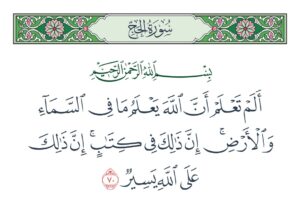 سُورَةُ الحَجِّ
بِسْمِ اللَّهِ الرَّحْمَنِ الرَّحِيمِ
أَلَمْ تَعْلَمْ أَنَّ ٱللَّهَ يَعْلَمُ مَا فِى ٱلسَّمَآءِ
وَٱلْأَرْضِ ۚ إِنَّ ذَٰلِكَ فِى كِتَٰبٍ ۚ إِنَّ ذَٰلِكَ
عَلَى ٱللَّهِ يَسِيرٌ ٧٠